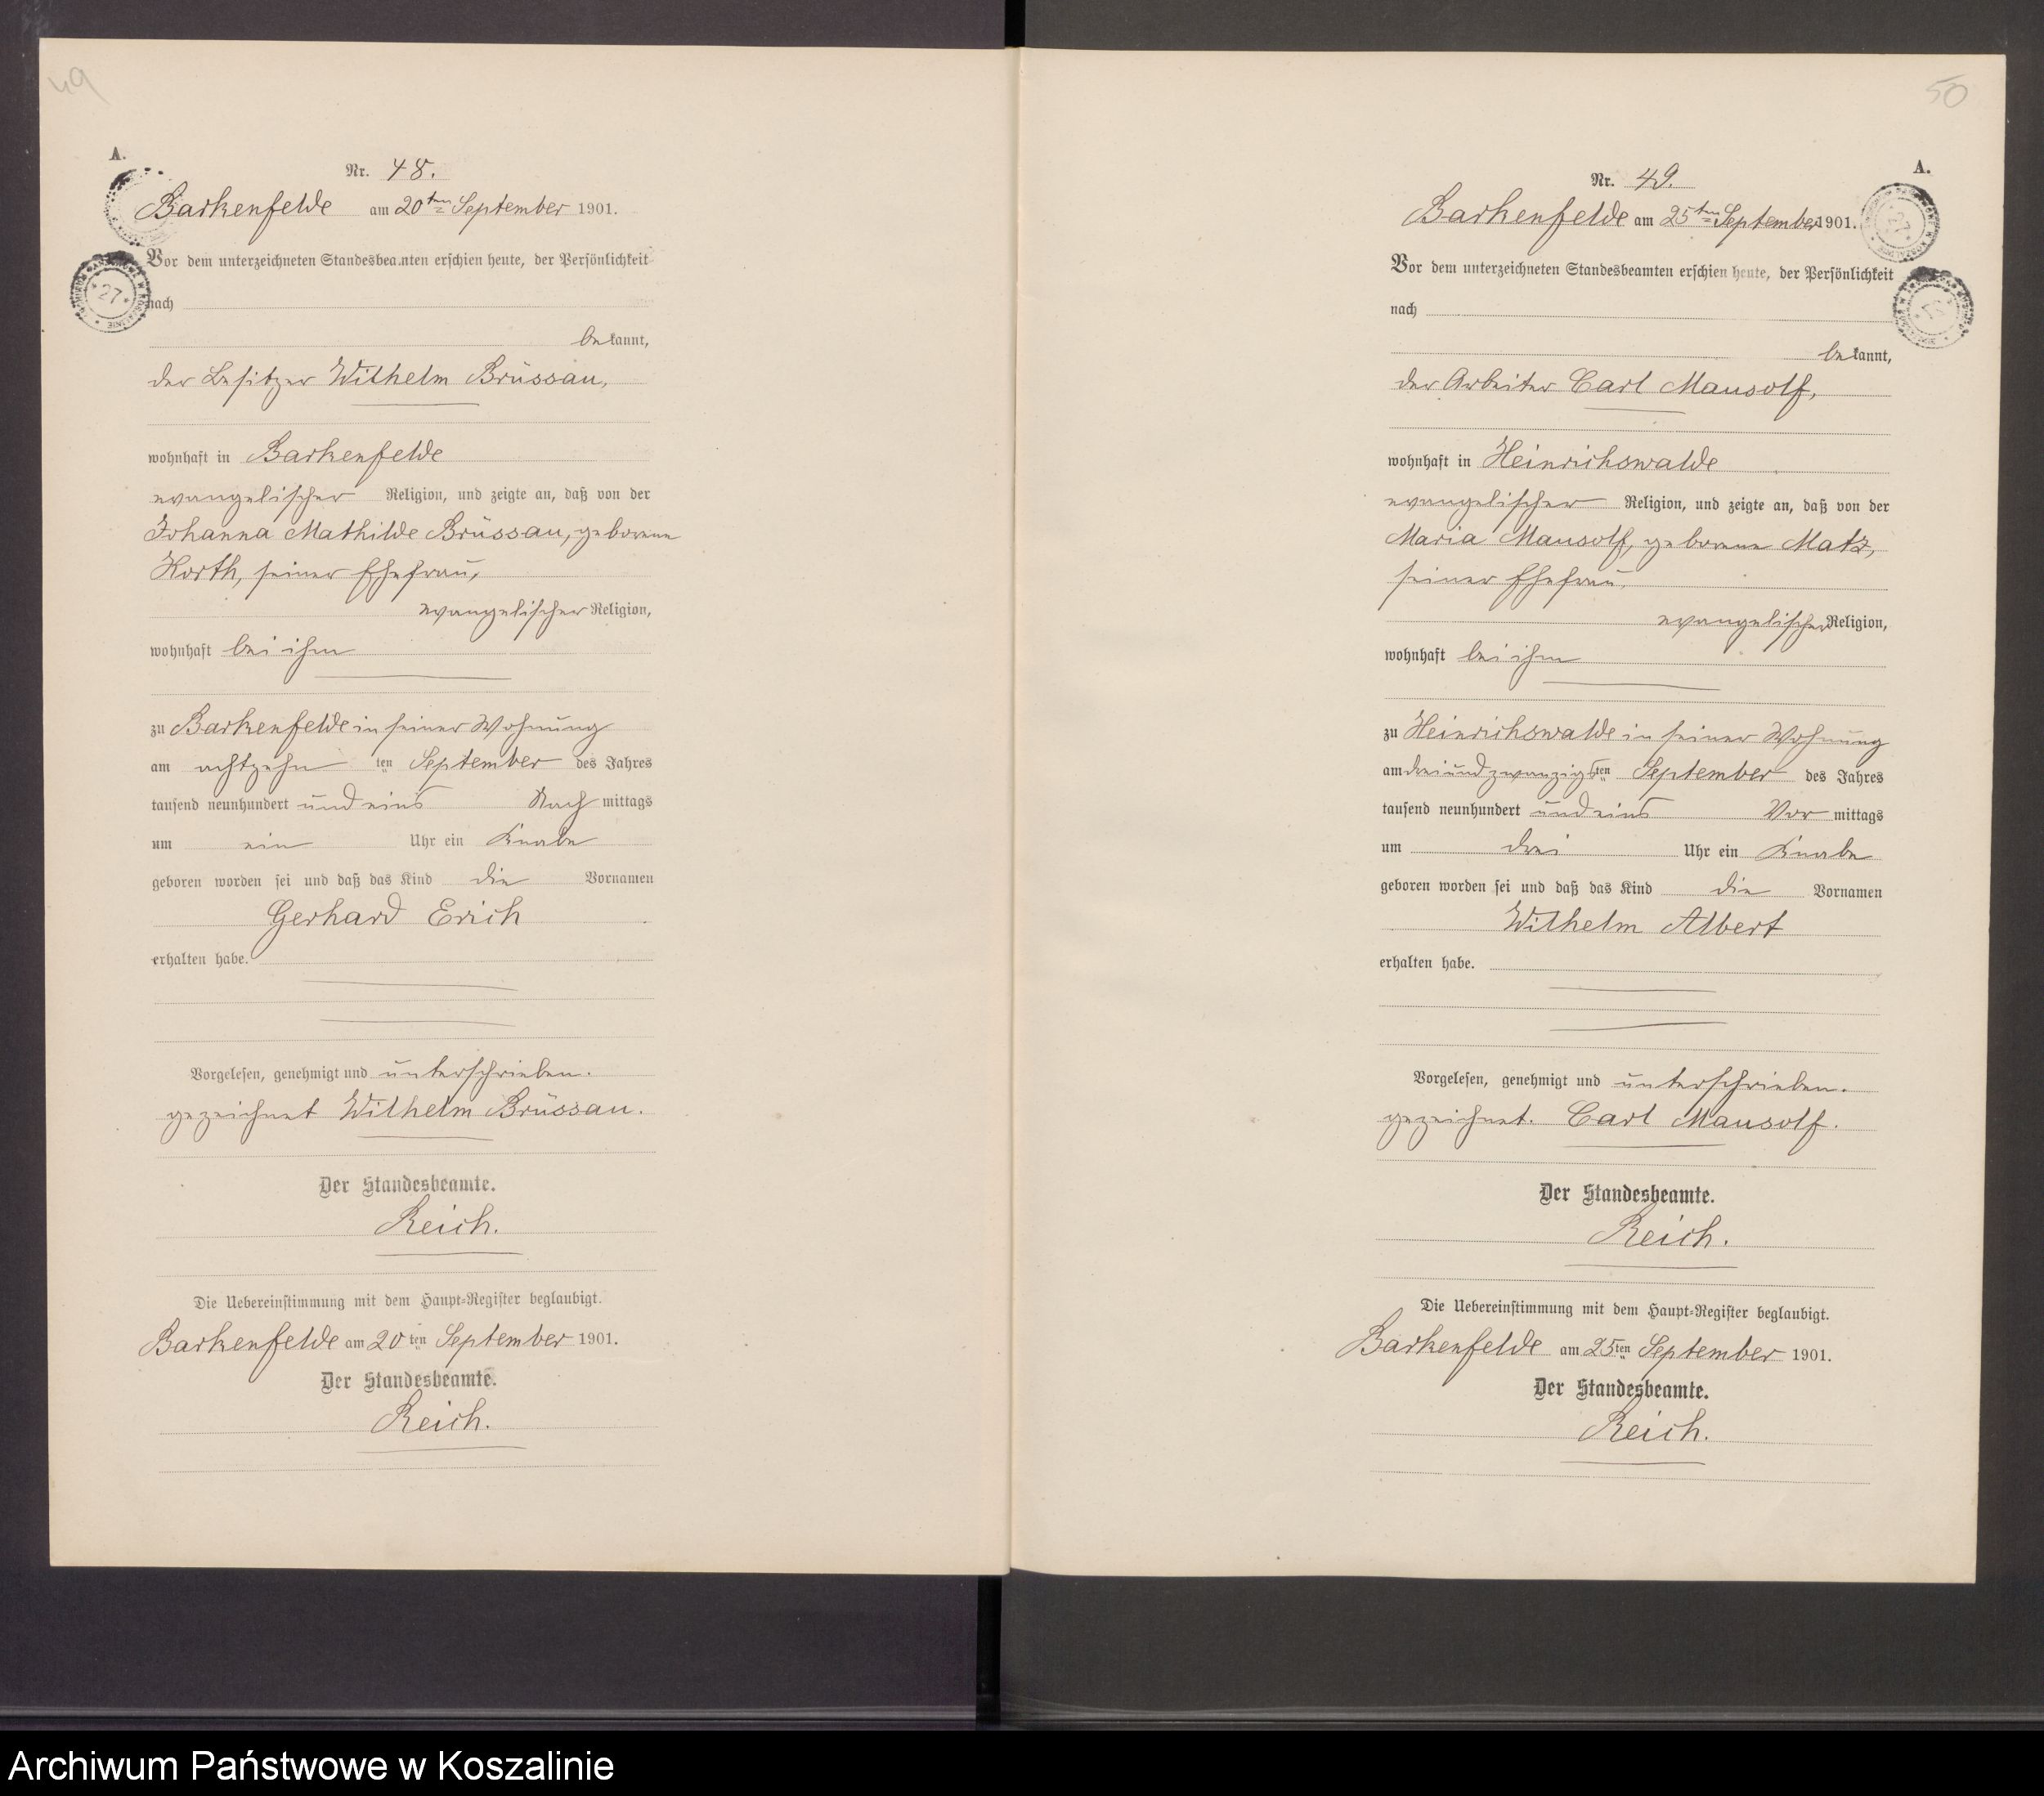 49
A.
Nr. 48.
Barkenfelde am 20ten September 1901.
Vor dem unterzeichneten Standesbeamten erschien heute, der Persönlichkeit
nach
bekannt,
der Besitzer Wilhelm Brüssau,
wohnhaft in Barkenfelde
evangelischer Religion, und zeigte an, daß von der
Johanna Mathilde Brüssau, geborene
Horth, seiner Ehefrau,
evangelischer Religion,
wohnhaft bei ihm
zu Barkenfelde in seiner Wohnung
am achtzehn ten September des Jahres
tausend neunhundert und eins Nachmittags
um ein Uhr ein Knabe
geboren worden sei und daß das Kind die Vornamen
Gerhard Erich
erhalten habe.
Vorgelesen, genehmigt und unterschrieben.
gezeichnet Wilhelm Brüssau.
Der Standesbeamte.
Reich.
Die Uebereinstimmung mit dem Haupt-Register beglaubigt.
Barkenfelde am 20ten September 1901.
Der Standesbeamte.
Reich.
50
A.
Nr. 49.
Barkenfelde am 25ten September 1901.
Vor dem unterzeichneten Standesbeamten erschien heute, der Persönlichkeit
nach
bekannt,
der Arbeiter Carl Mausolf,
wohnhaft in Heinrichswalde
evangelischer Religion, und zeigte an, daß von der
Maria Mausolf, geborene Matz,
seiner Ehefrau,
evangelischer Religion,
wohnhaft bei ihm
zu Heinrichswalde in seiner Wohnung
am dreiundzwanzigsten September des Jahres
tausend neunhundert und eins Vormittags
um drei Uhr ein Knabe
geboren worden sei und daß das Kind die Vornamen
Wilhelm Albert
erhalten habe.
Vorgelesen, genehmigt und unterschrieben.
gezeichnet. Carl Mausolf.
Der Standesbeamte.
Reich.
Die Uebereinstimmung mit dem Haupt-Register beglaubigt.
Barkenfelde am 25ten September 1901.
Der Standesbeamte.
Reich.
Archiwum Państwowe w Koszalinie